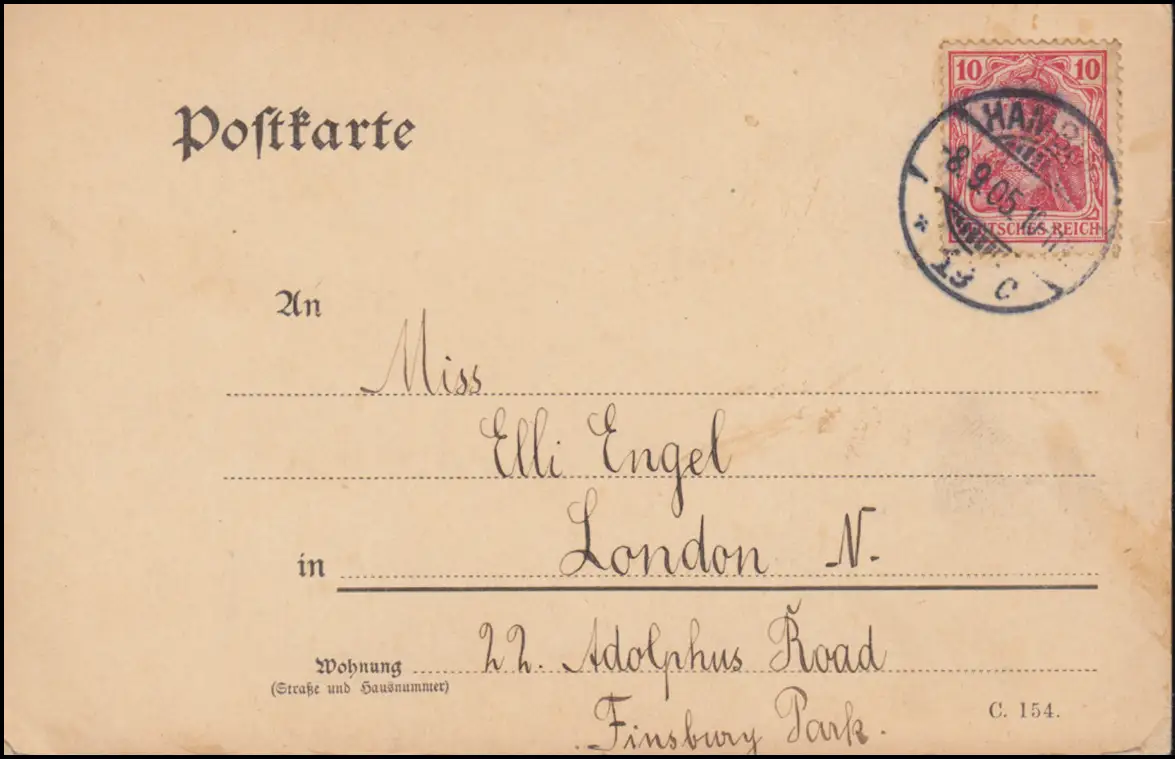 Postkarte
10 10
HAMB
-8.9.05.
REICH
* 19 C
An
Miss
Elli Engel
in London N.
Wohnung 22. Adolphus Road
(Straße und Hausnummer)
Finsbury Park.
C. 154.